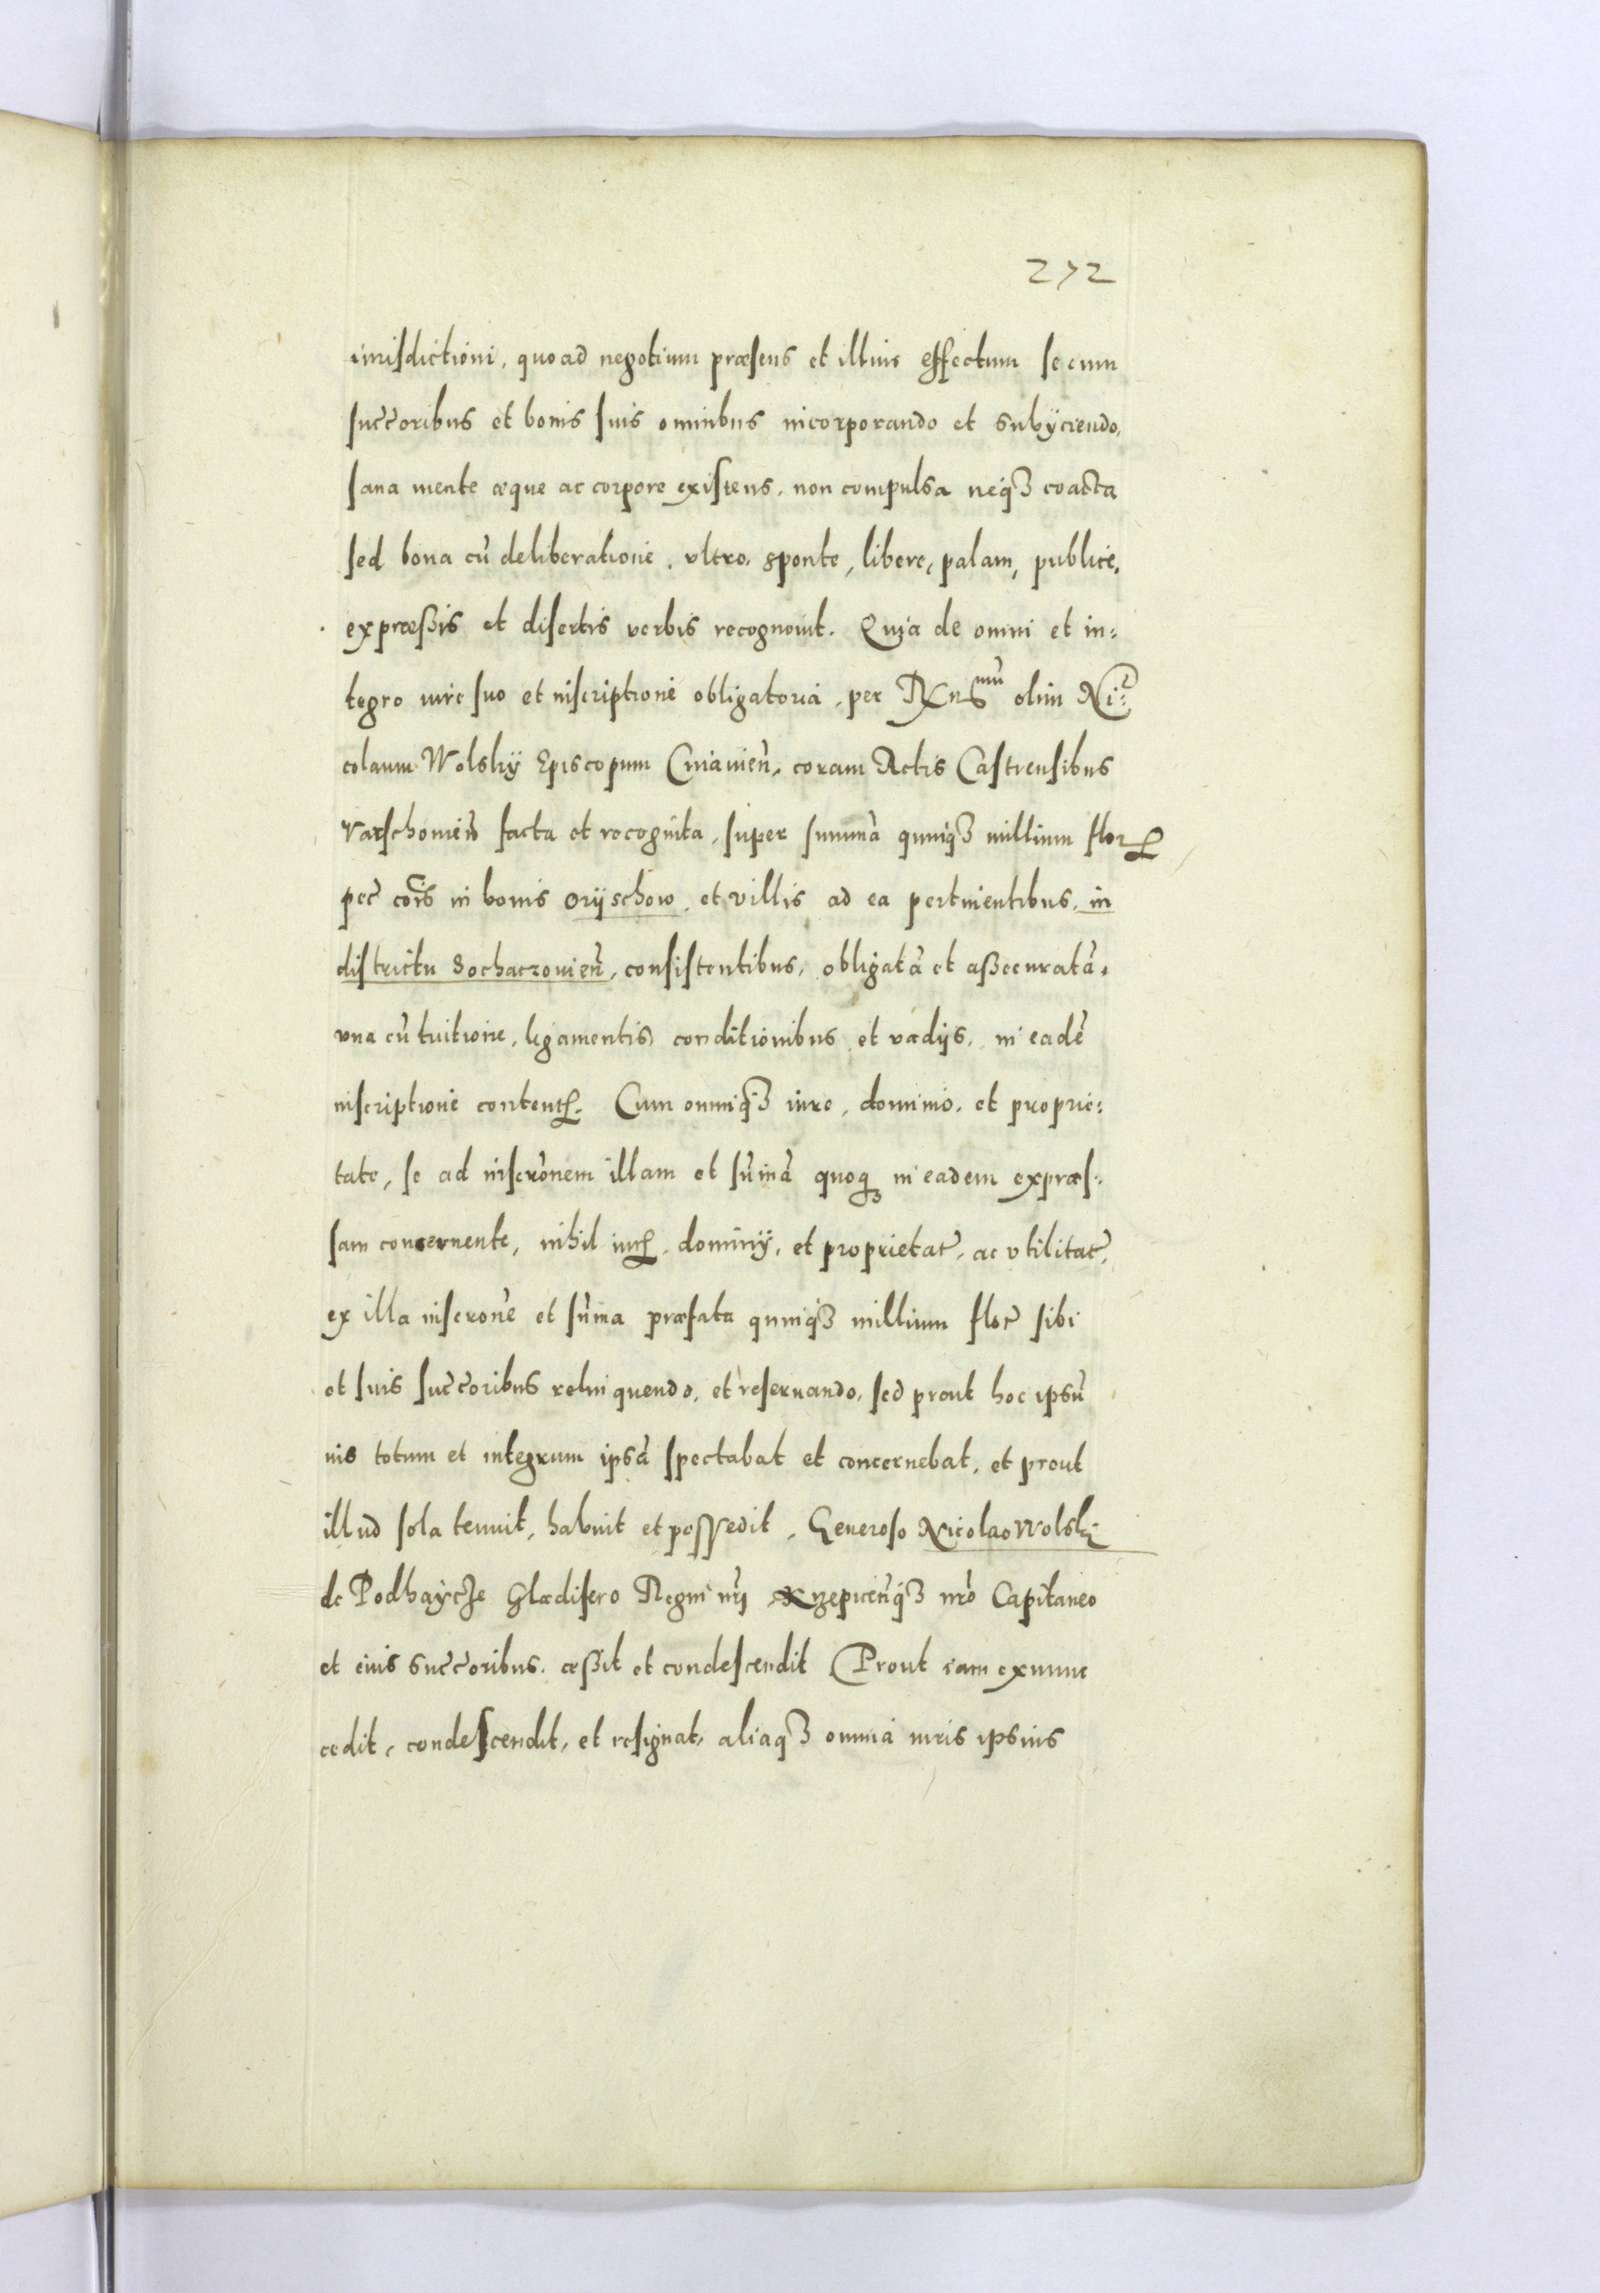 272
iurisdictioni, quo ad negotium præsens et illius effectum se cum
succ̃oribus et bonis suis omnibus incorporando et subÿciendo,
sana mente æque ac corpore existens, non compulsa neq₃ coacta
sed bona cũ deliberatione, vltro, sponte, libere, palam, publice,
expræßis et disertis verbis recognouit. Quia de omni et in:
tegro iure suo et inscriptione obligatoria, per olim Ni:
colaum Wolskÿ Episcopum Cuiauieñ, coram Actis Castrensibus
Varschouieñ facta et recognita, super summã quinq₃ millium flor
pec̃ cõis in bonis Orÿschow, et villis ad ea pertinentibus, in
districtu Sochaczouieñ, consistentibus, obligatã et aßecuratã,
vna cũ tuitione, ligamentis conditionibus et vadijs, in eadẽ
inscriptione content. Cum omniq₃ iure, dominio, et proprie:
tate, se ad inscrõnem illam et sum̃ã quoq₃ in eadem expræs:
sam concernente, nihil iur, dominÿ, et proprietat̃, ac vtilitat̃,
ex illa inscrõne et sum̃a præfata quinq₃ millium flor̃ sibi
et suis succ̃oribus relinquendo, et reseruando, sed prout hoc ipsũ
ius totum et integrum ipsã spectabat et concernebat, et prout
illud sola tenuit, habuit et possedit, Generoso Nicolao Wolski
de Podhaÿcze Glædifero Regni nr̃i Krzepiceñq₃ nr̃o Capitaneo
et eius succ̃oribus, cæßit et condescendit Prout iam exnunc
cedit, condescendit, et resignat, aliaq₃ omnia iuris ipsius